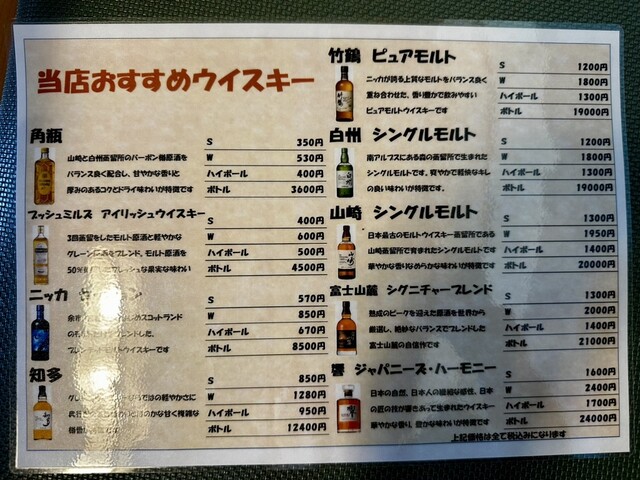 当店おすすめウイスキー
角瓶
山崎と白州蒸留所のバーボン樽原酒を
バランス良く配合し、甘やかな香りと
厚みのあるコクとドライ味わいが特徴です
S 350円
W 530円
ハイボール 400円
ボトル 3600円
ブッシュミルズ アイリッシュウイスキー
3回蒸留をしたモルト原酒と軽やかな
グレーン原酒をブレンド、モルト原酒を
50%
フレッシュな果実な味わい
S 400円
W 600円
ハイボール 500円
ボトル 4500円
ニッカ
スコットランド
のモルト
ブレンドした、
モルトウイスキーです
S 570円
W 850円
ハイボール 670円
ボトル 8500円
知多
ではの軽やかさに
ほのかな甘く複雑な
です
S 850円
W 1280円
ハイボール 950円
ボトル 12400円
竹鶴 ピュアモルト
ニッカが誇る上質なモルトをバランス良く
重ね合わせた、香り豊かで飲みやすい
ピュアモルトウイスキーです
S 1200円
W 1800円
ハイボール 1300円
ボトル 19000円
白州 シングルモルト
南アルプスにある森の蒸留所で生まれた
シングルモルトです。爽やかで軽快なキレ
の良い味わいが特徴です。
S 1200円
W 1800円
ハイボール 1300円
ボトル 19000円
山崎 シングルモルト
日本最古のモルトウイスキー蒸留所である
山崎蒸留所で育まれたシングルモルトです
華やかな香りなめらかな味わいが特徴です
S 1300円
W 1950円
ハイボール 1400円
ボトル 20000円
富士山麓 シグニチャーブレンド
熟成のピークを迎えた原酒を世界から
厳選し、絶妙なバランスでブレンドした
富士山麓の自信作です
S 1300円
W 2000円
ハイボール 1400円
ボトル 21000円
響 ジャパニーズ・ハーモニー
日本の自然、日本人の繊細な感性、日本
の匠の技が響きあって生まれたウイスキー
華やかな香り、豊かな味わいが特徴です
S 1600円
W 2400円
ハイボール 1700円
ボトル 24000円
上記価格は全て税込みになります